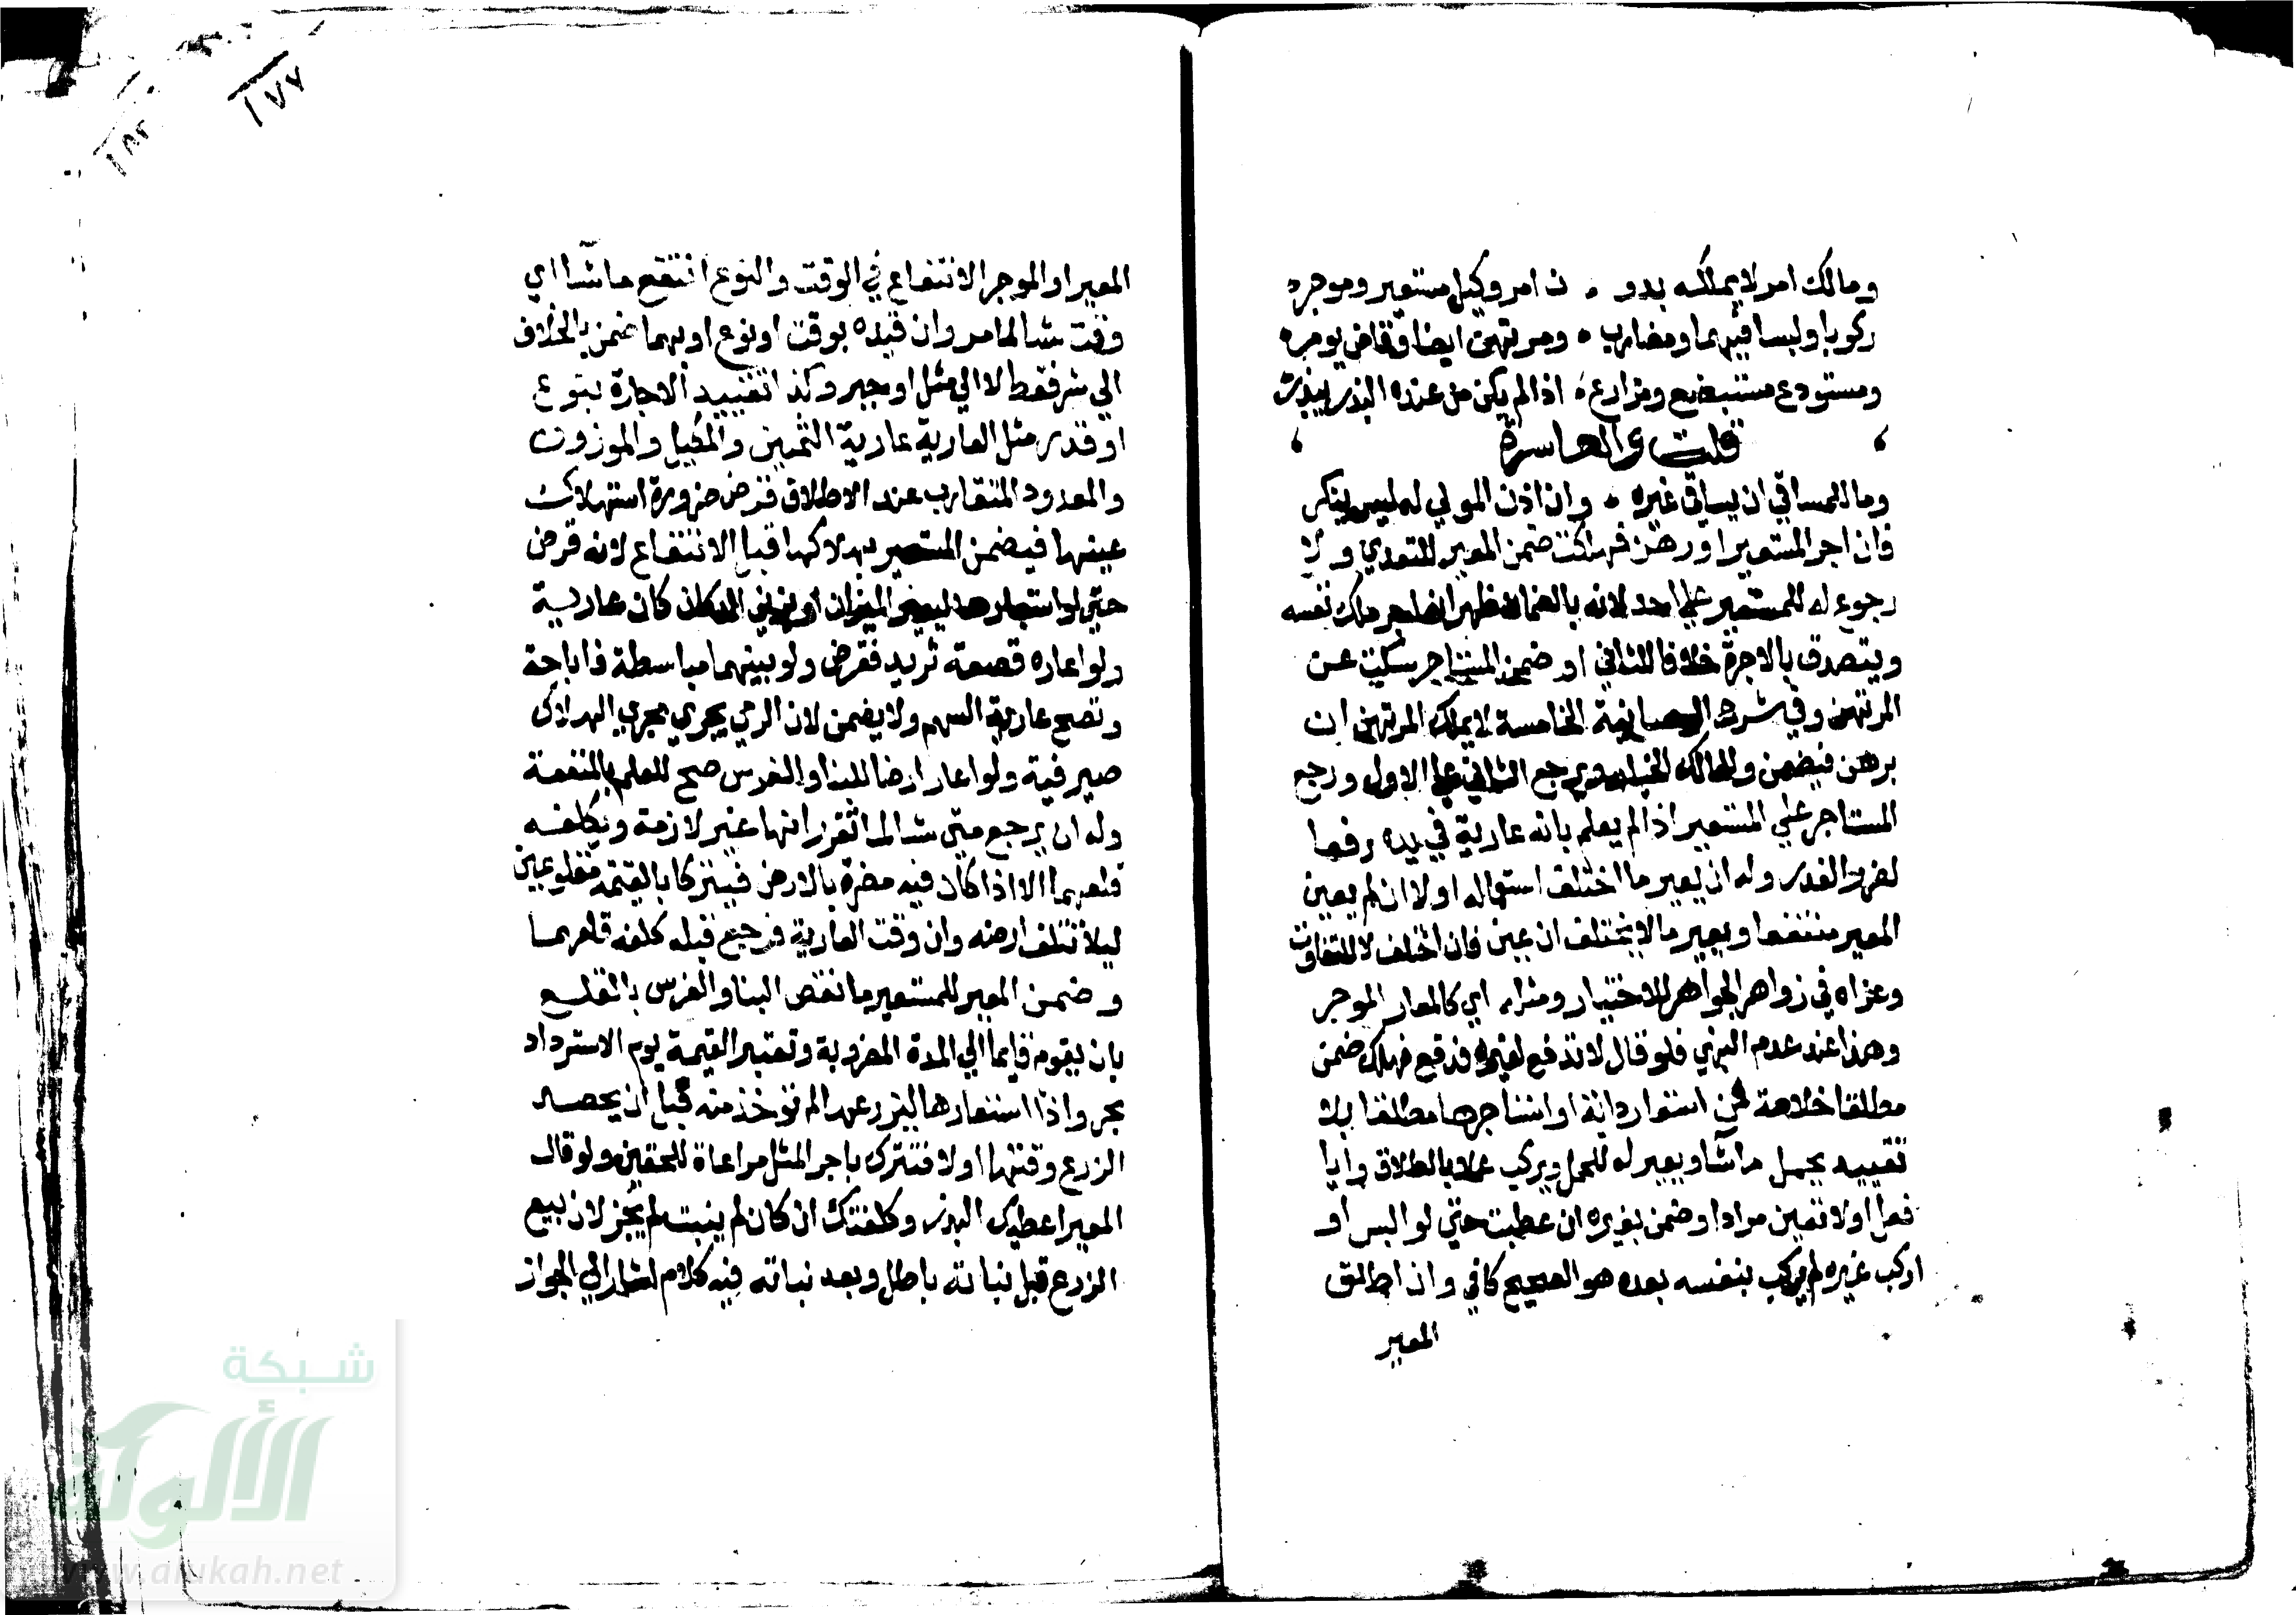 ومالك امر لا يملكه بدو ن امر وكيل مستعير وموجر
ركوبا ولبسا فيهما ومضارب ومرتهن ايضا وقاض يومر
ومستودع مستبضع ومزارع اذا لم يكن من عنده البذر يبذر
قلت والعاشرة
وما للمساقي ان يساقي غيره وان اذن المولي له ليس ينكر
فان اجر المستعير او رهن فهلكت ضمن المعير للتعدي ولا
رجوع له للمستعير علي احد لانه بالضمان ظهر انه اجر ملك نفسه
ويتصدق بالاجرة خلافا للثاني او ضمن المستاجر سكت عن
المرتهن وفي شرح الوهبانية الخامسة لا يملك المرتهن ان
يرهن فيضمن وللمالك الخيار ويرجع الثاني علي الاول ورجع
المستاجر علي المستعير اذا لم يعلم بانه عارية في يده رفعا
لضرر الغدر وله ان يعير ما اختلف استعماله او لا ان لم يعين
المعير منتفعا ويعير ما لا يختلف ان عين فان اختلف لا للتفاوت
وعزاه في زواهر الجواهر للاختيار ومثله اي كالمعار الموجر
وهذا عند عدم النهي فلو قال لا تدفع لغيرك فدفع فهلك ضمن
مطلقا خلاصة فمن استعار دابة او استاجرها مطلقا بلا
تقييد يحمل ما شا ويعير له للحمل ويركب عملا بالاطلاق وايا
فعل اولا تعين مرادا وضمن بغيره ان عطبت حتي لو البس او
اركب غيره لم يركب بنفسه بعده هو الصحيح كافي وان اطلق
المعير
١٧٧
١٨٢
المعير او الموجر الانتفاع في الوقت والنوع انتفع ما شا اي
وقت شا لما مر وان قيده بوقت او نوع او بهما ضمن بالخلاف
الي شر فقط لا الي مثل او خير وكذا تقييد الاجارة بنوع
او قدر مثل العارية عارية الثمين والمكيل والموزون
والمعدود المتقارب عند الاطلاق قرض ضرورة استهلاك
عينها فيضمن المستعير بهلاكها قبل الانتفاع لانه قرض
حتي لو استعارها ليعير الميزان او يزين الدكان كان عارية
ولو اعاره قصعة ثريد فقرض ولو بينهما مباسطة فاباحة
وتصح عارية السهم ولا يضمن لان الرمي يجري مجري الهلاك
صيرفية ولو اعار ارضا للبنا والغرس صح للعلم بالمنفعة
وله ان يرجع متي شا لما تقرر انها غير لازمة ويكلفه
قلعهما الا اذا كان فيه مضرة بالارض فيتركا بالقيمة مقلوعين
ليلا تتلف ارضه وان وقت العارية فرجع قبله كلفه قلعهما
وضمن المعير للمستعير ما نقص البنا والغرس بالقلع
بان يقوم قايما الي المدة المضروبة وتعتبر القيمة يوم الاسترداد
بحر واذا استعارها ليزرعها لم توخذ منه قبل ان يحصد
الزرع وقتها او لا فتترك باجر المثل مراعاة للحقين ولو قال
المعير اعطيك البذر وكلفتك ان كان لم ينبت لم يجز لان بيع
الزرع قبل نباته باطل وبعد نباته فيه كلام اشار الي الجواز
شبكة
الألوكة
www.alukah.net